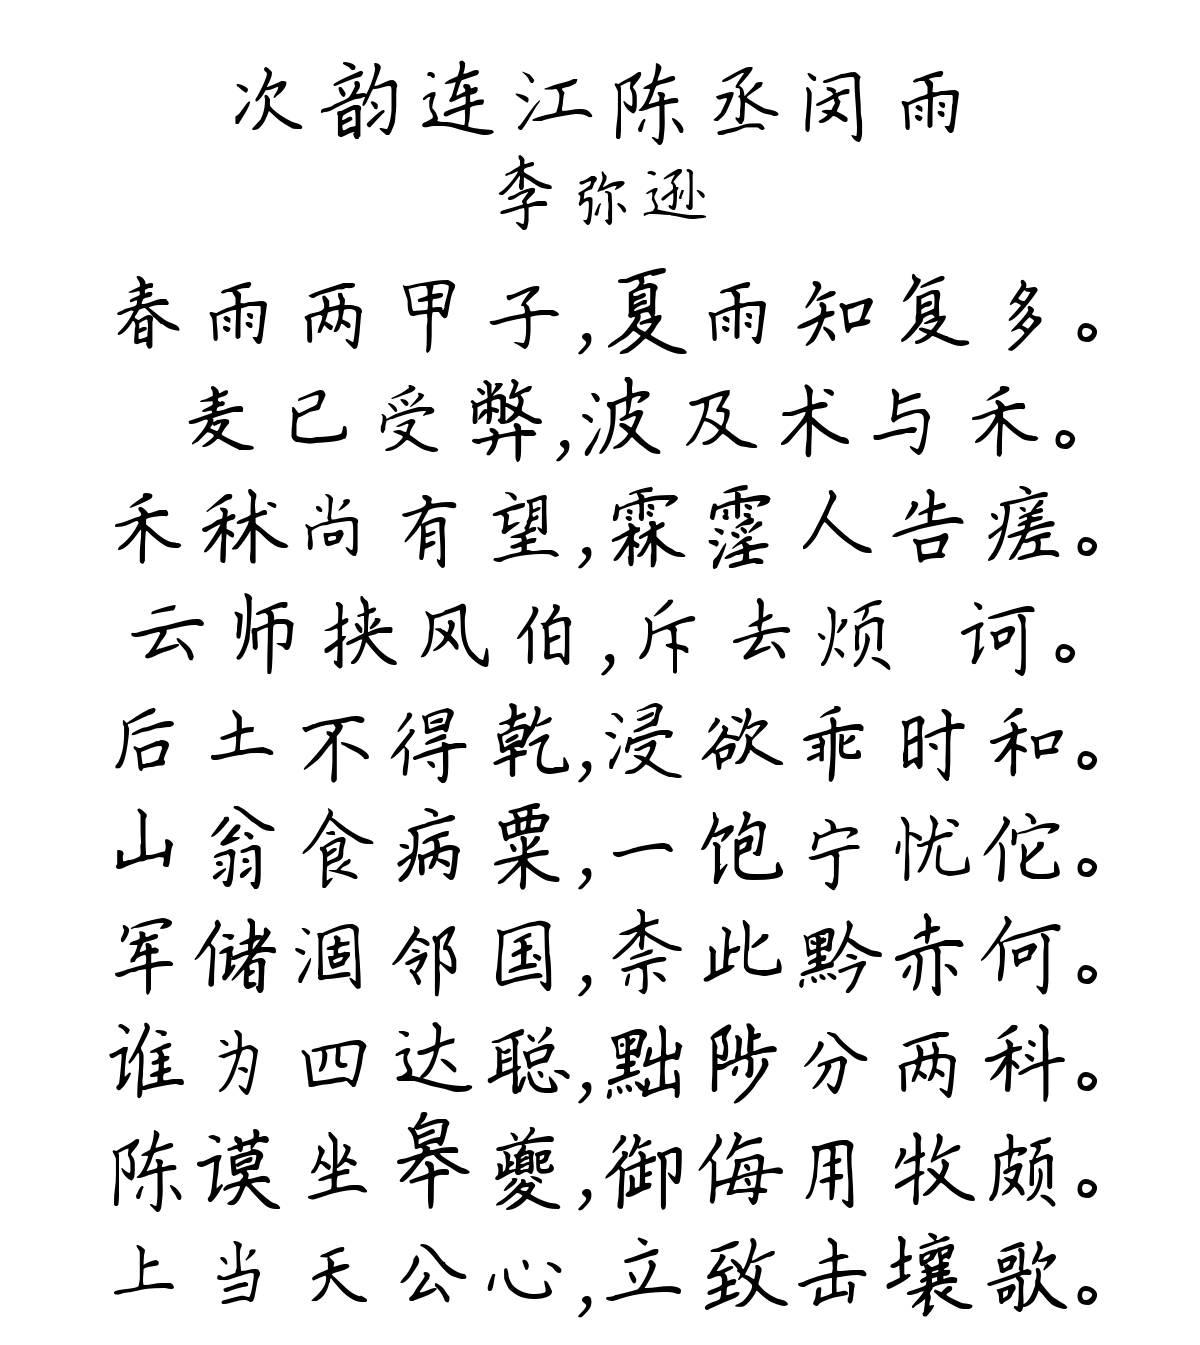 次韵连江陈丞闵雨
李弥逊
春雨两甲子,夏雨知复多。
麦已受弊,波及术与禾。
禾秫尚有望,霖霪人告瘥。
云师挟风伯,斥去烦 诃。
后土不得乾,浸欲乖时和。
山翁食病粟,一饱宁忧佗。
军储涸邻国,柰此黔赤何。
谁为四达聪,黜陟分两科。
陈谟坐皋夔,御侮用牧颇。
上当天公心,立致击壤歌。